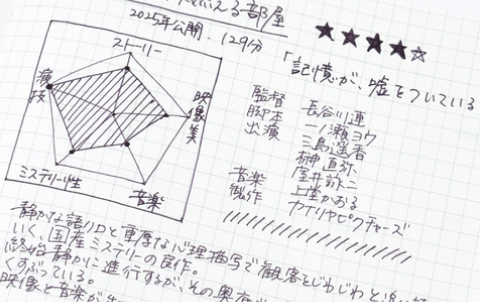 える部屋
2025年公開、129分
★★★★☆
「記憶が、嘘をついている
ストーリー
演技
映像美
ミステリー性
音楽
監督 長谷川連
脚本 一ノ瀬ヨウ
出演 三島遥香
榊直弥
室井
音楽 上堂かおる
製作 カナリヤピクチャーズ
静かな語り口と重厚な心理描写で観客をじわじわと追い
いく、国産ミステリーの良作。
終始静かに進行するが、その奥底
くすぶっている。
映像と音楽が